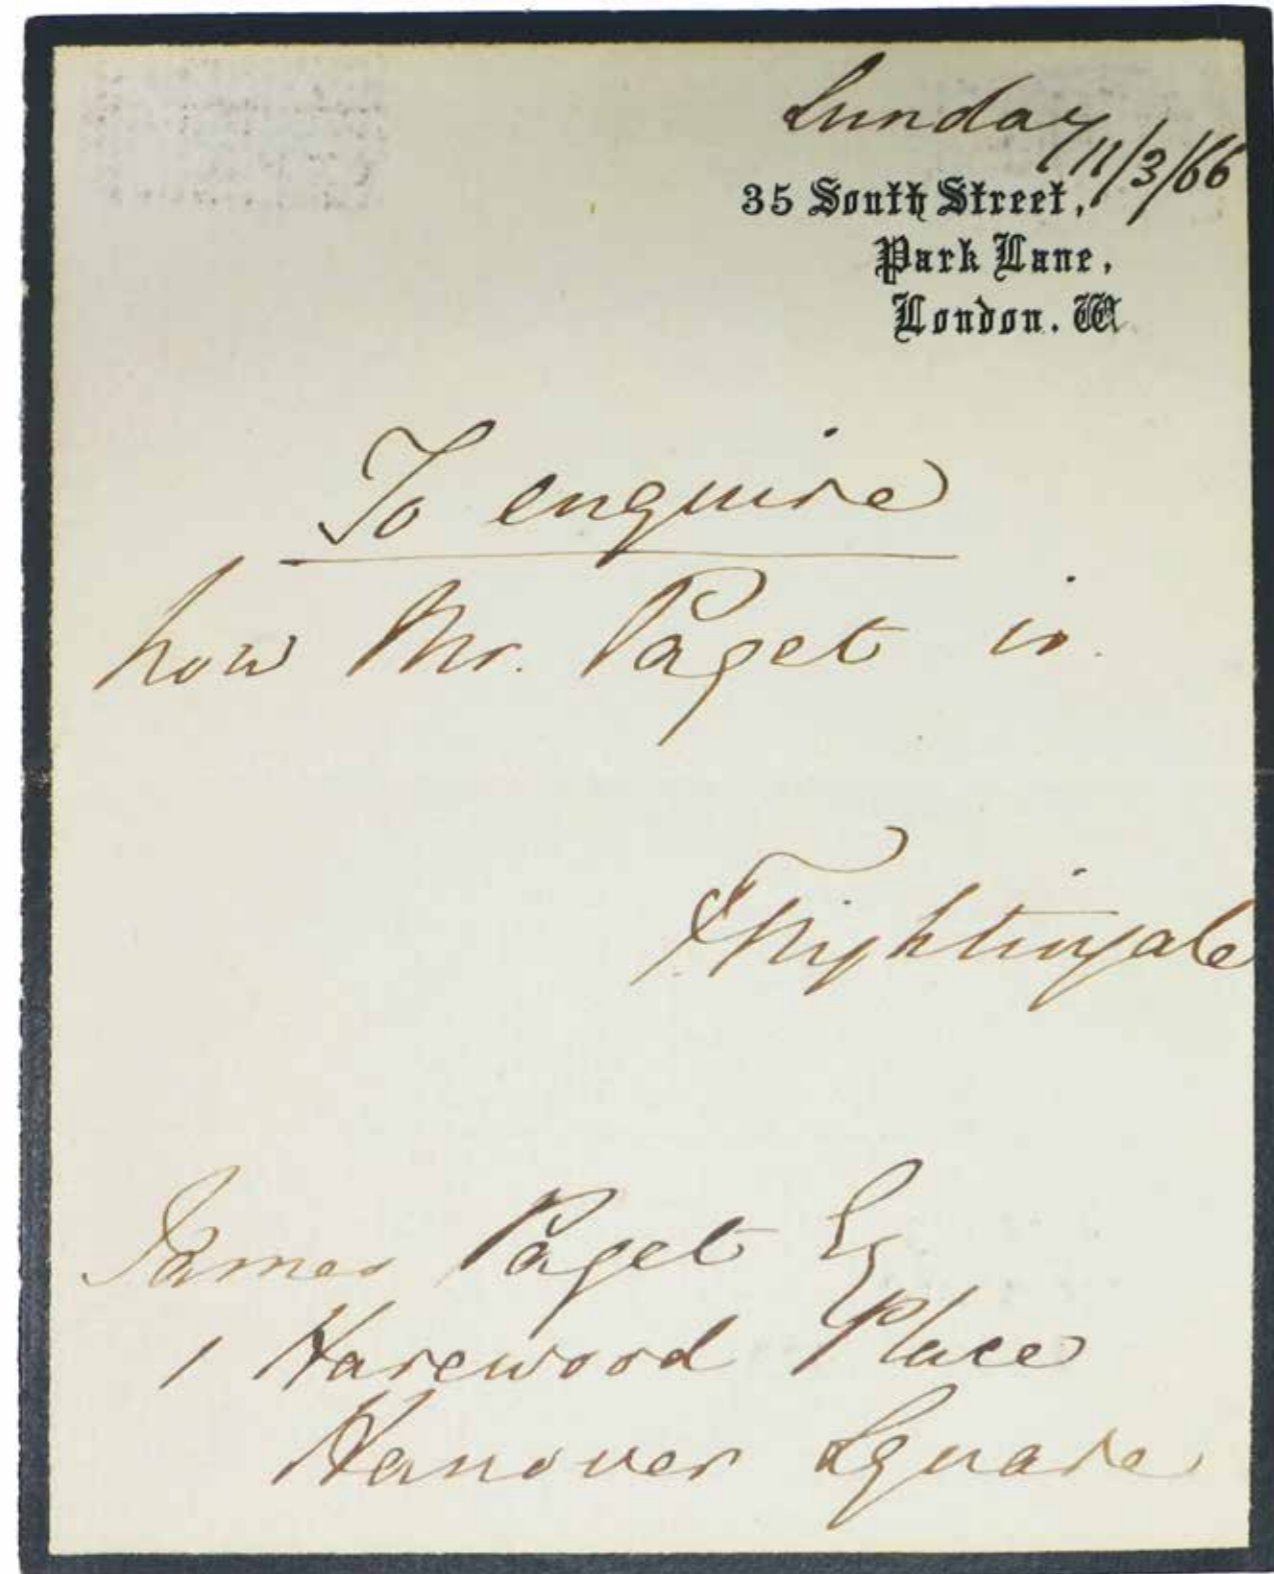 Sunday 11/3/66
35 South Street,
Park Lane,
London. W.
To enquire
how Mr. Paget is.
F Nightingale
James Paget Esq
1 Harewood Place
Hanover Square